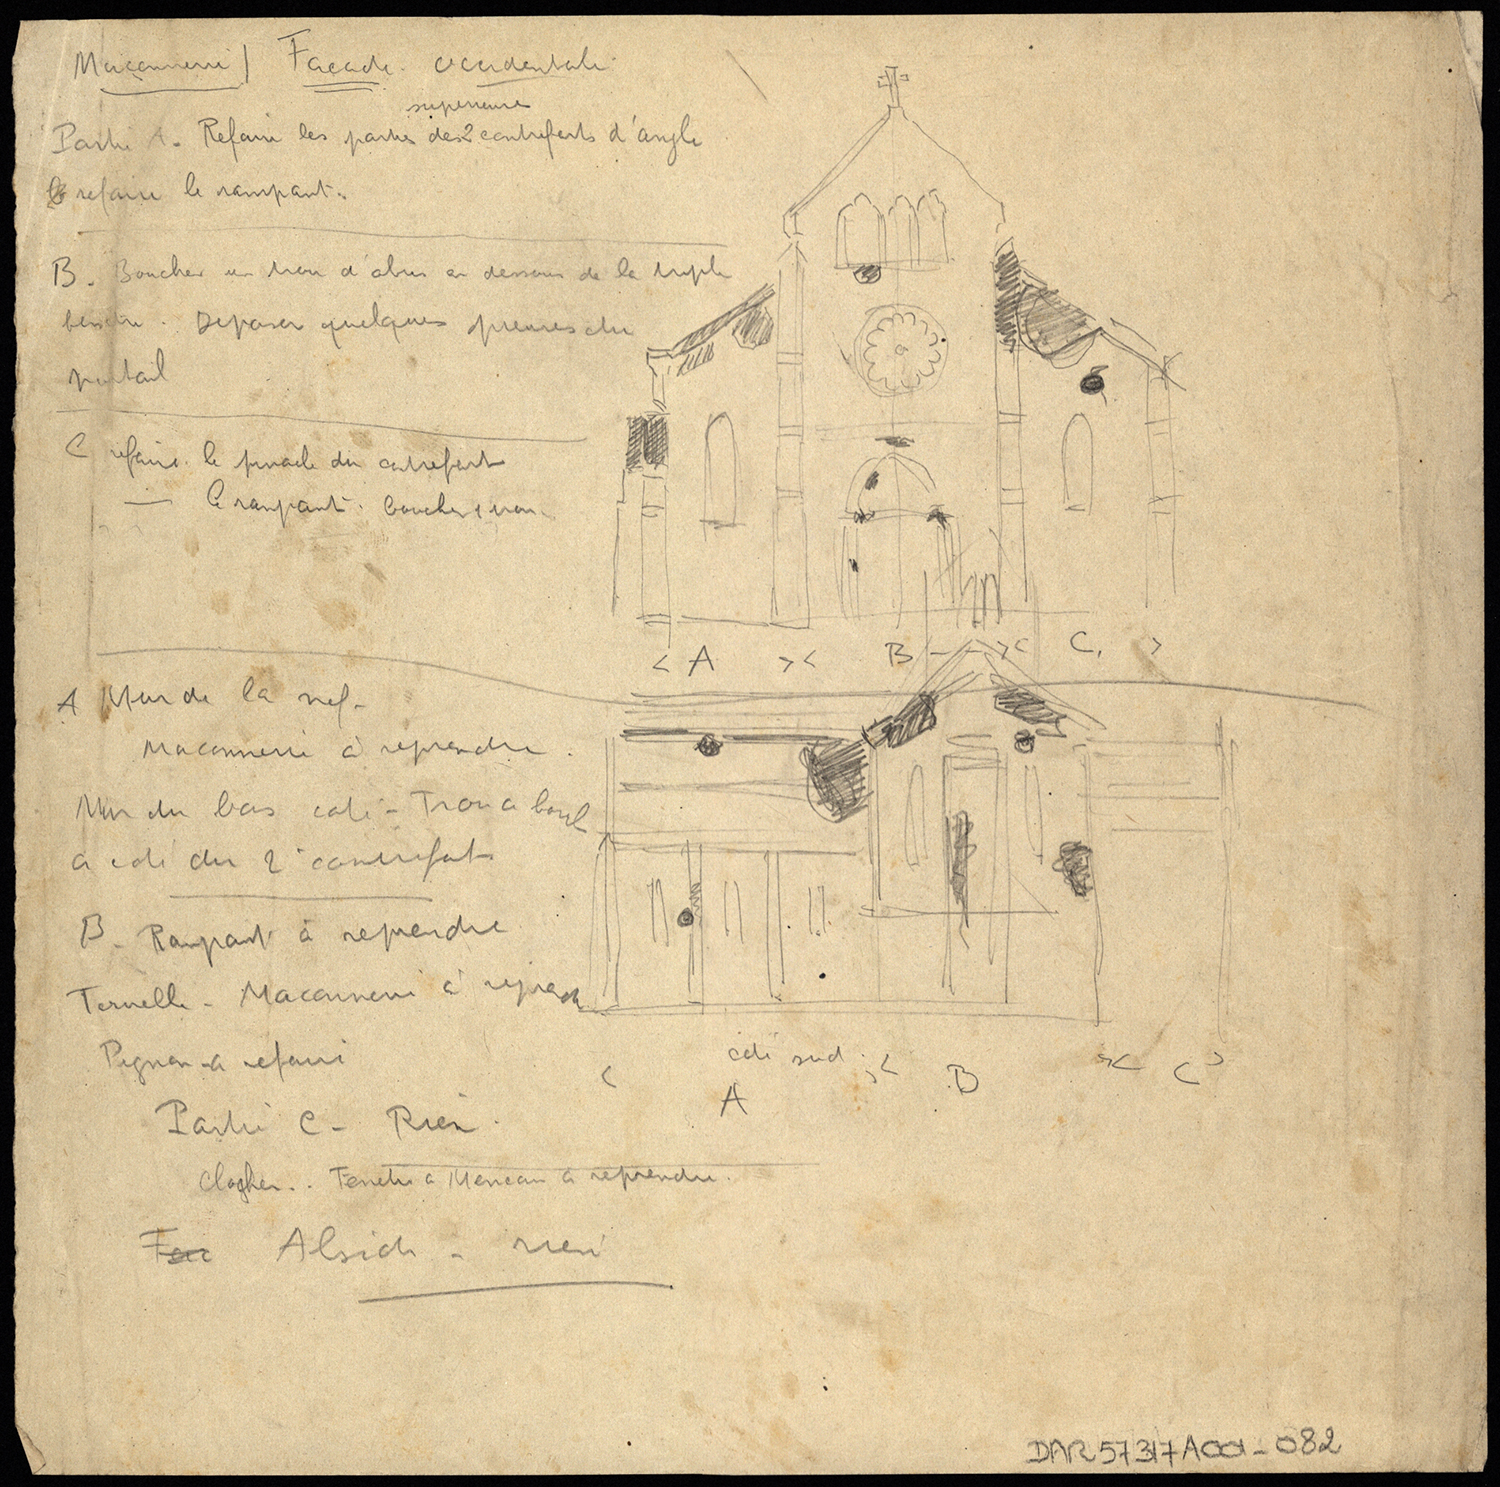 Maconnerie / Façade occidentale
superieure
Partie A. Refaire les parties des 2 contreforts d'angle
refaire le rampant.
B. Boucher un trou d'obus en dessous de la triple
fenetre. Deposer quelques pierres du
portail
C refaire le pinacle du contrefort
— le rampant. boucher 1 trou
< A >< B >< C. >
A Mur de la nef.
Maconnerie à reprendre.
Mur du bas coté - Trou a bouch
a coté du 2e contrefort
B. Rampant à reprendre
Maconnerie à reprendre
Pignon a refaire
coté sud
< A >< B >< C >
Partie C - Rien.
Clocher.. Fenetre a Meneau a reprendre.
Abside - rien
DAR 57317A001-082